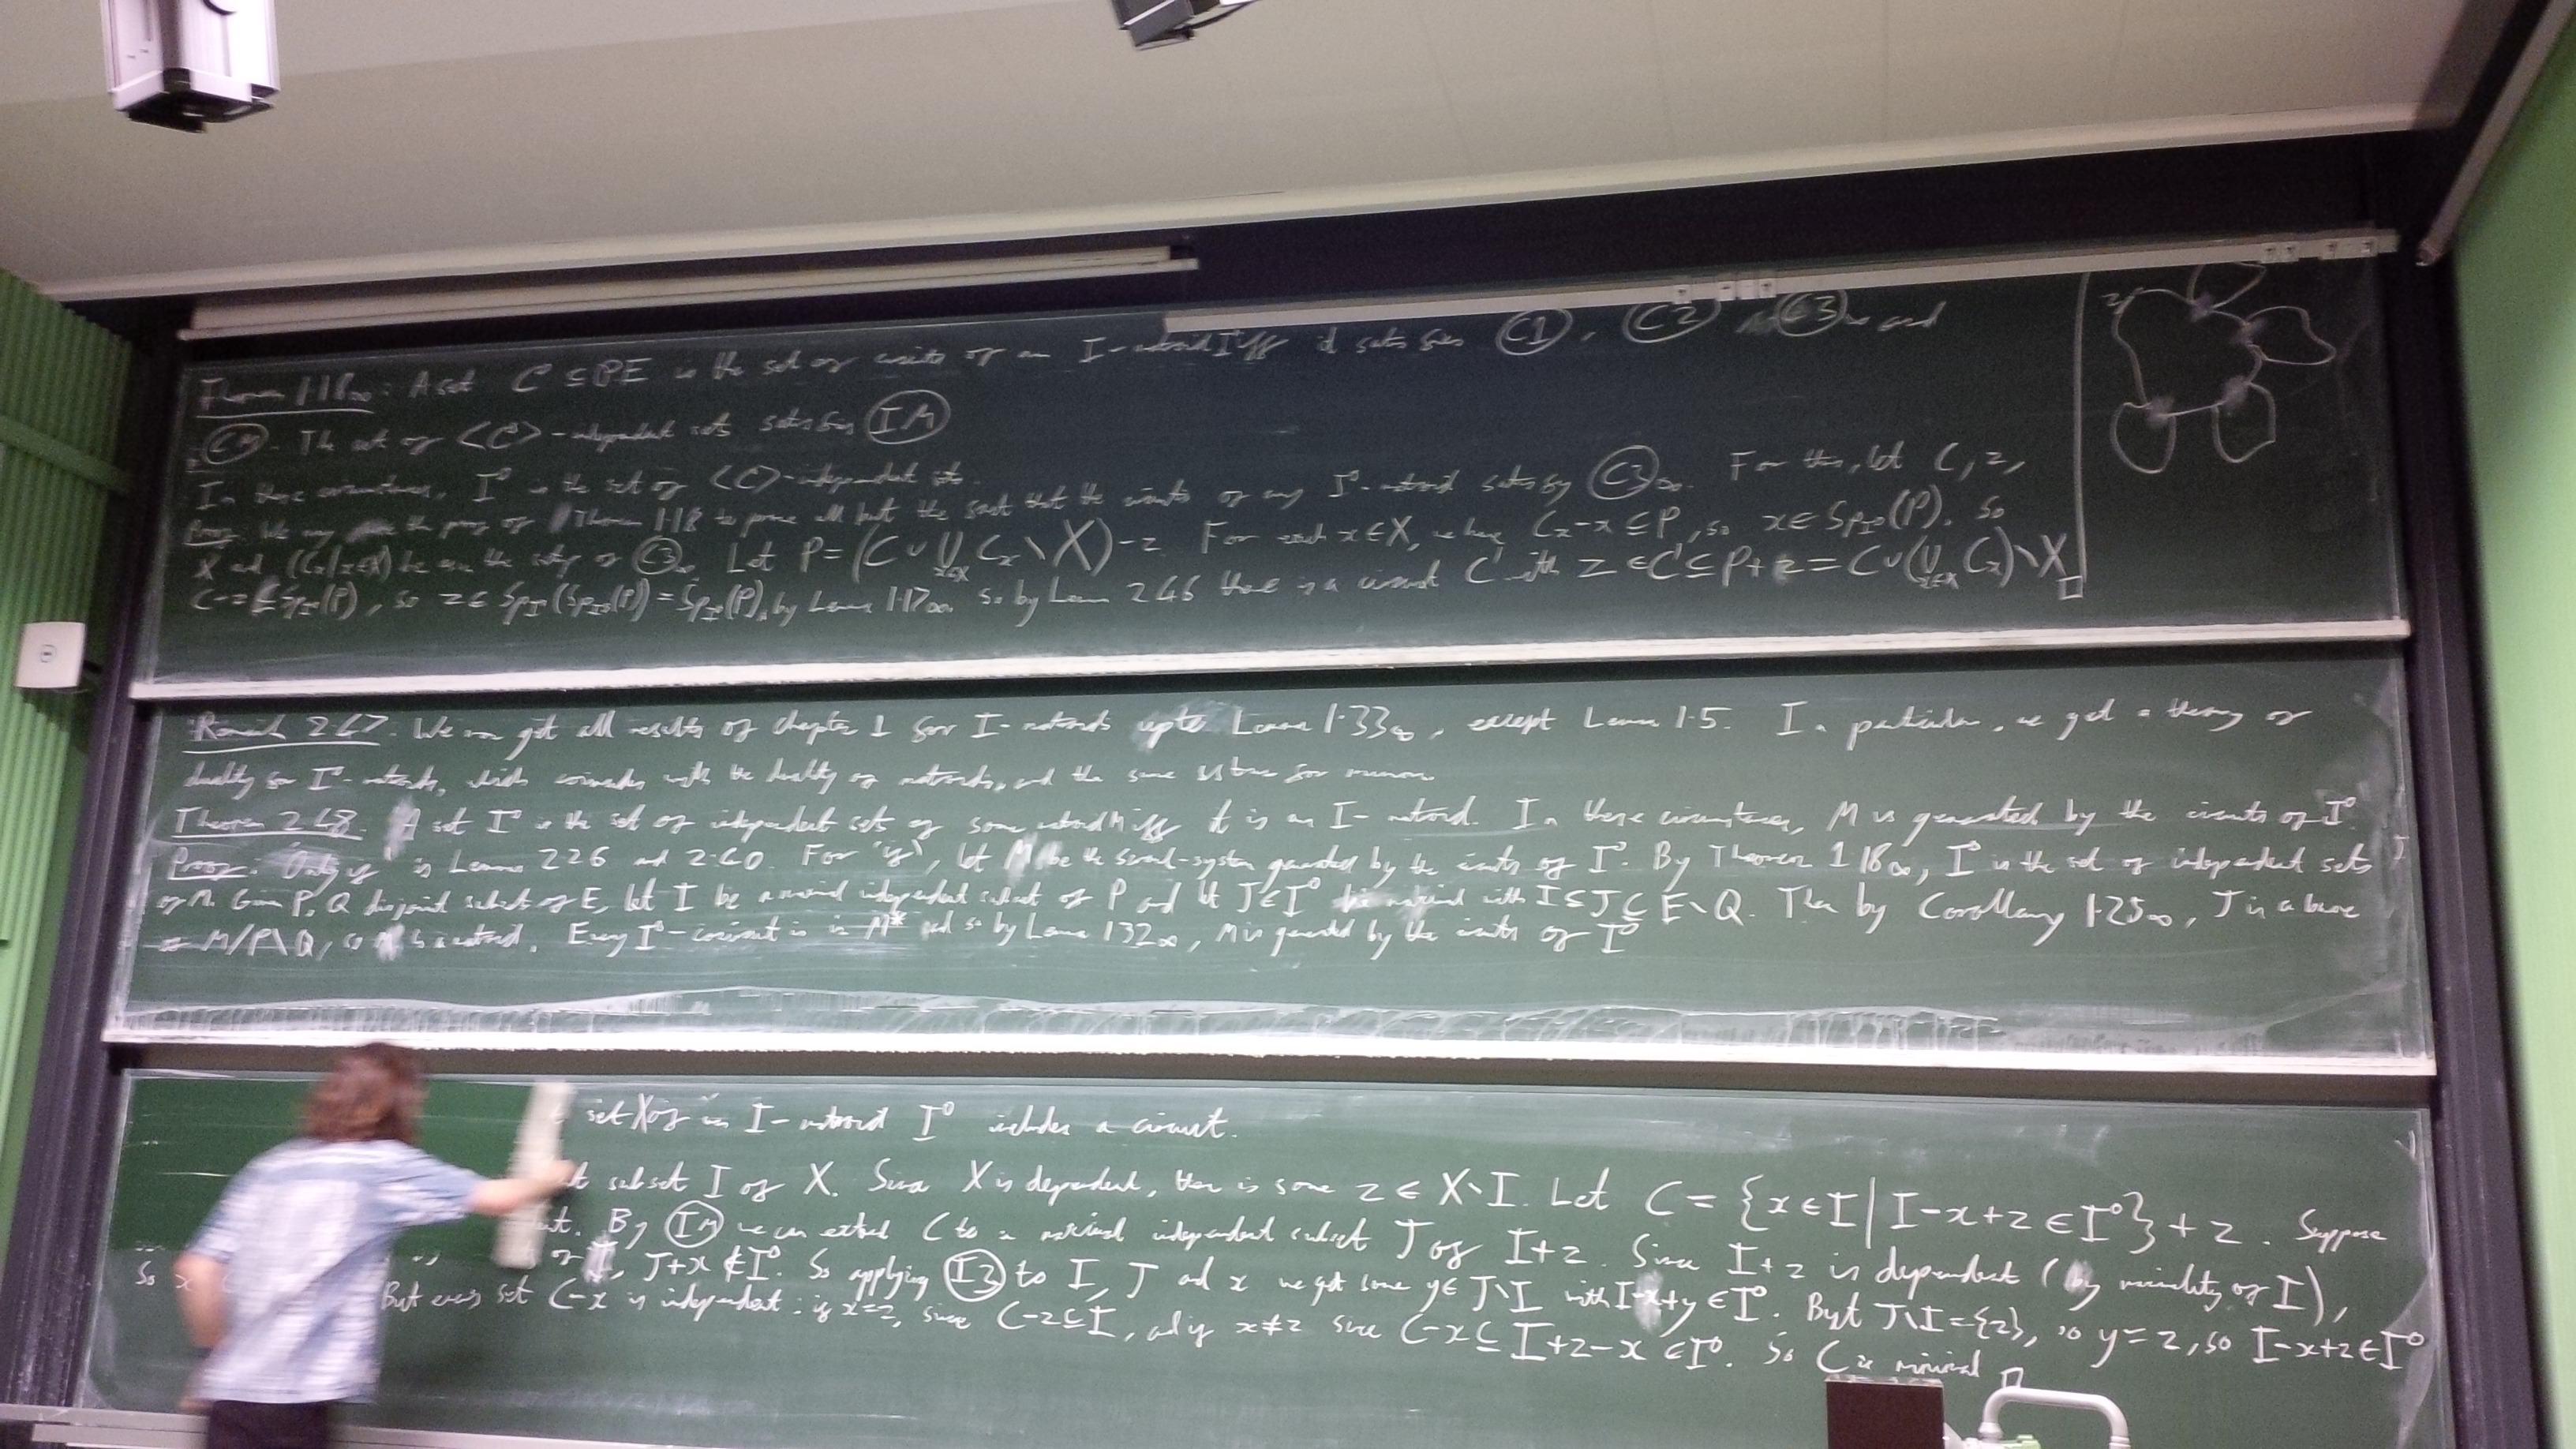 Theorem 1.18∞: A set C ⊆ PE is the set of circuits of an I-matroid I° iff it satisfies (C1), (C2), (C3)∞ and
(CM): The set of <C>-independent sets satisfies (IM)
In these circumstances, I° is the set of <C>-independent sets.
Proof: We may the proof of Theorem 1.18 to prove all but the fact that the circuits of any I°-matroid satisfy (C3)∞. For this, let C, z,
X and (Cx|x∈X) be as in the of (C3)∞. Let P = (C ∪ ⋃x∈X Cx \ X) - z. For each x ∈ X, we have Cx - x ⊆ P, so x ∈ SpI°(P). So
C - z ⊆ SpI°(P), so z ∈ SpI°(SpI°(P)) = SpI°(P), by Lemma 1.17∞. So by Lemma 2.46 there is a circuit C' with z ∈ C' ⊆ P + z = C ∪ (⋃x∈X Cx) \ X □
z
Remark 2.47. We now get all results of chapter 1 for I-matroids upto Lemma 1.33∞, except Lemma 1.5. In particular, we get a theory of
duality for I°-matroids, which coincides with the duality of matroids, and the same is true for minors.
Theorem 2.48. A set I° is the set of independent sets of some matroid M iff it is an I-matroid. In these circumstances, M is generated by the circuits of I°.
Proof: 'Only if' is Lemmas 2.26 and 2.40. For 'if', let M be the system generated by the circuits of I°. By Theorem 1.18∞, I° is the set of independent sets
of M. Given P, Q disjoint subsets of E, let I be a maximal independent subset of P and let J ∈ I° be maximal with I ⊆ J ⊆ E \ Q. Then by Corollary 1.25∞, J is a base
M/P\Q, so M is a matroid. Every I°-cocircuit is in M* and so by Lemma 1.32∞, M is generated by the circuits of I°
set X of an I-matroid I° includes a circuit.
subset I of X. Since X is dependent, there is some z ∈ X \ I. Let C = {x ∈ I | I - x + z ∈ I°} + z. Suppose
By (IM) we can extend C to a maximal independent subset J of I + z. Since I + z is dependent (by maximality of I),
of I, J + x ∉ I°. So applying (I3) to I, J and x we get some y ∈ J \ I with I - x + y ∈ I°. But J \ I = {z}, so y = z, so I - x + z ∈ I°
So x But every set C - x is independent: if x = z, since C - z ⊆ I, and if x ≠ z since C - x ⊆ I + z - x ∈ I°. So C is minimal □